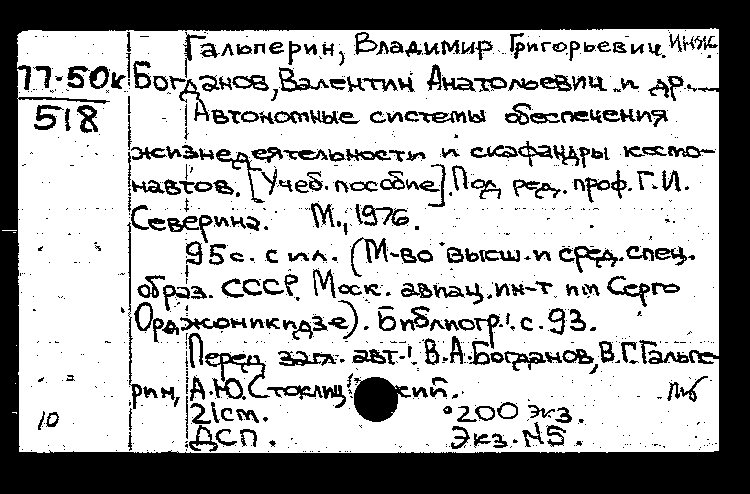 Гальперин, Владимир Григорьевич. Инж
77-50к Богданов, Валентин Анатольевич и др.
518 Автономные системы обеспечения
жизнедеятельности и скафандры космо-
навтов. [Учеб. пособие]. Под ред. проф. Г.И.
Северина. М., 1976.
95с. с ил. (М-во высш. и сред. спец.
образ. СССР. Моск. авиац. ин-т им Серго
Орджоникидзе). Библиогр.: с. 93.
Перед загл. авт.: В.А.Богданов, В.Г.Гальпе-
рин, А.Ю.Стоклиц кий.
21см. 200 экз.
10 ДСП. Экз. №5.